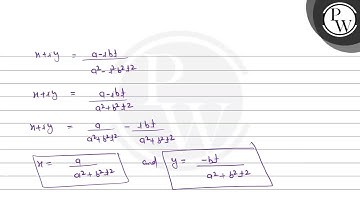 PW
x+iy = a-ibt / a²-i²b²t²
x+iy = a-ibt / a²+b²t²
x+iy = a / a²+b²t² - ibt / a²+b²t²
x = a / a²+b²t² and y = -bt / a²+b²t²